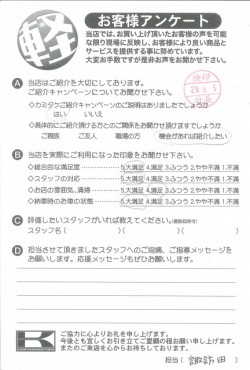 軽
お客様アンケート
当店では、お買い上げ頂いたお客様の声を可能
な限り現場に反映し、お客様により良い商品と
サービスを提供する事に努めています。
大変お手数ですが是非お声をお聞かせ下さい。
A 当店はご紹介を大切にしております。
ご紹介キャンペーンについてお聞かせ下さい。
◇カミタケご紹介キャンペーンのご説明はありましたでしょうか
はい/いいえ
◇具体的にご紹介頂ける方とのご関係をお聞かせ頂けますでしょうか
ご親族 ご友人 職場の方 機会があれば紹介したい
B 当店を実際にご利用になった印象をお聞かせ下さい。
◇総合的な満足度 5.大満足 4.満足 3.ふつう 2.やや不満 1.不満
◇スタッフの対応 5.大満足 4.満足 3.ふつう 2.やや不満 1.不満
◇お店の雰囲気、清掃 5.大満足 4.満足 3.ふつう 2.やや不満 1.不満
◇納車時のお車の状態 5.大満足 4.満足 3.ふつう 2.やや不満 1.不満
C 評価したいスタッフがいれば教えてください。(複数回答可)
スタッフ名( )( )
D 担当させて頂きましたスタッフへのご指摘、ご指導メッセージを
お願いします。応援メッセージもぜひお願いします。
K
ご協力に心よりお礼を申し上げます。
今後とも宜しくお引き立てご愛顧の程お願い申し上げます。
またのご来店を心からお待ちしております。
担当( 諏訪田 )